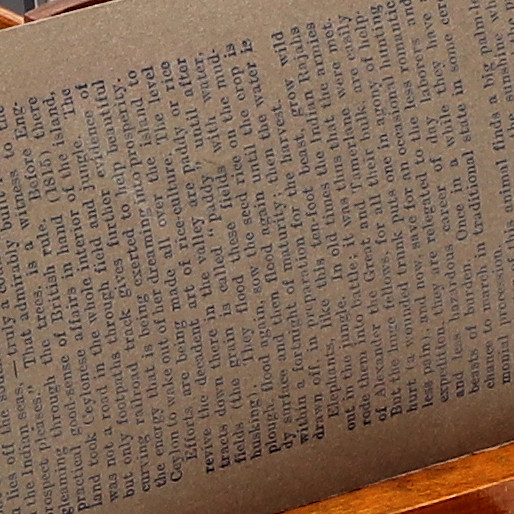 lies off the
the Indian seas,—truly a comely bulwark to the
prospect pleases." That admiral, witness to Eng-
gleaming through the trees, is a Before there
practical good-sense of British rule. (1815)
land took Ceylonese affairs in hand the island,
was not a road in the whole interior of the The
but only footpaths through field and jungle.
curving railroad track gives further evidence of
the energy that is being exerted to help beautiful
Ceylon to wake out of her dreaming into prosperity.
Efforts are being made all over the island to
revive the decadent art of rice-culture. The level
tracts down there in the valley are paddy or rice
fields (the grain is called "paddy" until after
husking). They flood these fields with water,
plough, flood again, sow the seed rice on the mud-
dy surface and then flood again until the crop is
within a fortnight of maturity; then the water is
drawn off in preparation for the harvest.
Elephants, like this ten-foot beast, grow wild
out in the jungle. In old times the Indian Rajahs
rode them into battle; it was thus that the armies
of Alexander the Great and Tamerlane were met.
But the huge fellows, for all their bulk, are easily
hurt (a wounded trunk puts one in agony of help-
less pain); and now, save for an occasional hunting
expedition, they are relegated to the less romantic
and less hazardous career of day laborers and
beasts of burden. Once in a while they have a
chance to march in traditional state in some cere-
monial procession.
this animal finds a big palm